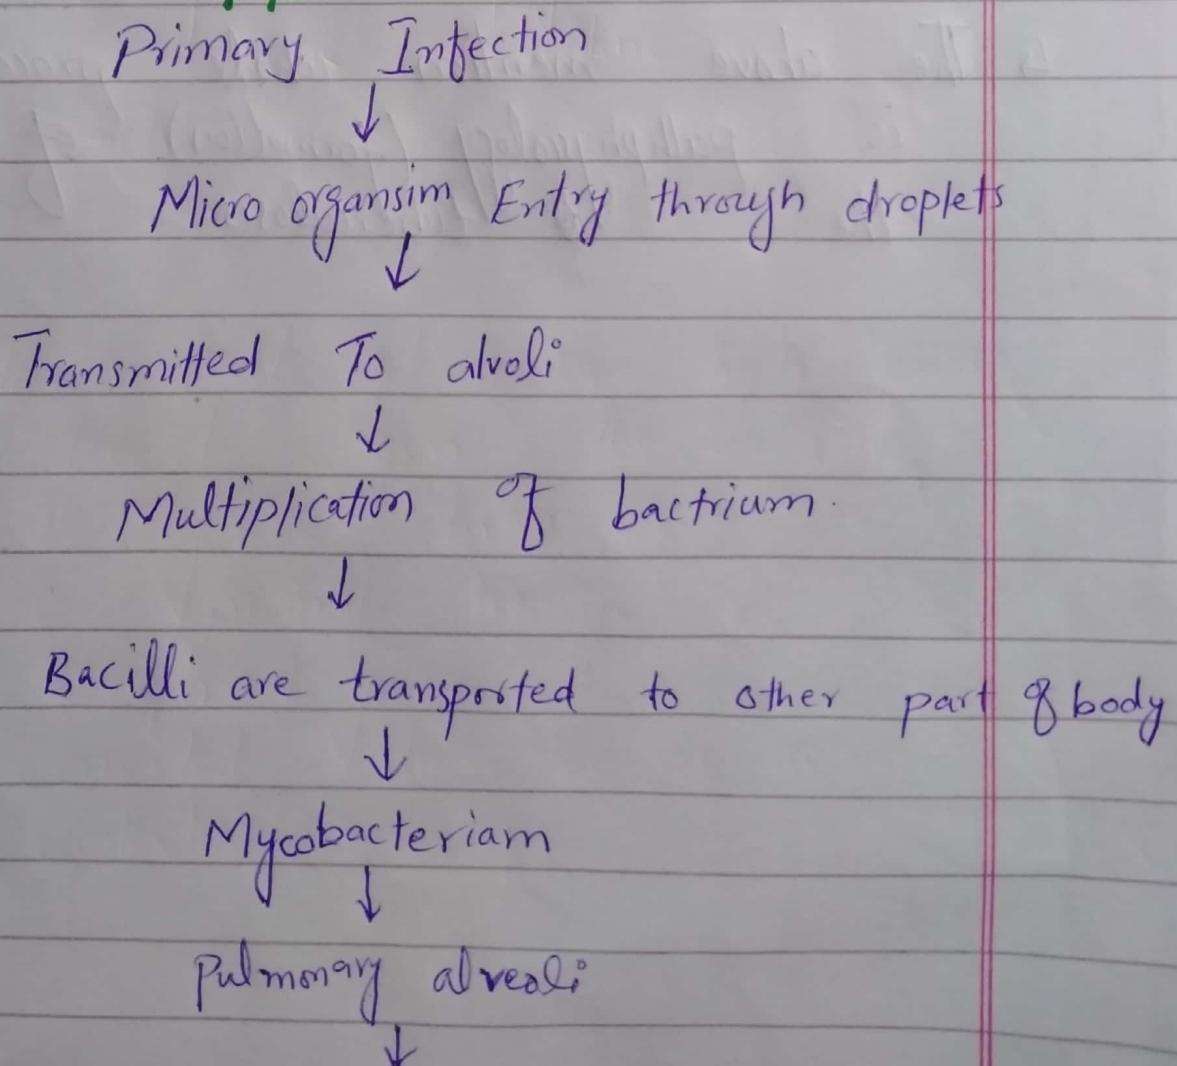 Primary Infection
↓
Micro organsim Entry through droplets
↓
Transmitted To alvoli
↓
Multiplication of bactrium.
↓
Bacilli are transported to other part of body
↓
Mycobacteriam
↓
Pulmonary alveoli
↓